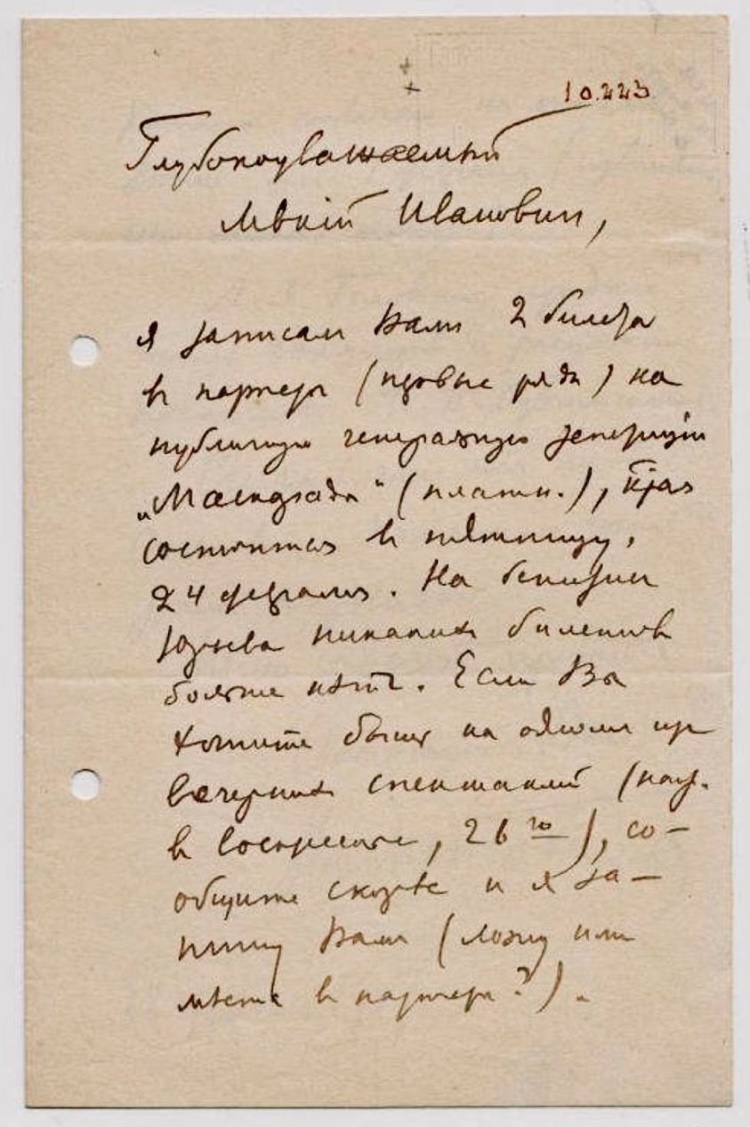 10.223
Глубокоуважаемый
Мокій Ивановичъ,
я записал Вамъ 2 билета
в партеръ (первые ряды) на
публичную генеральную репетицію
„Маскарада“ (платн.),
состоится в пятницу,
24 февраля. На бенефисъ
Юрьева никакихъ билетов
больше нѣтъ. Если Вы
хотите быть на одном из
вечерних спектаклей (напр.
в воскресенье, 26го), со-
общите скорѣе и я за-
пишу Вамъ (ложу или
мѣста в партерѣ?).